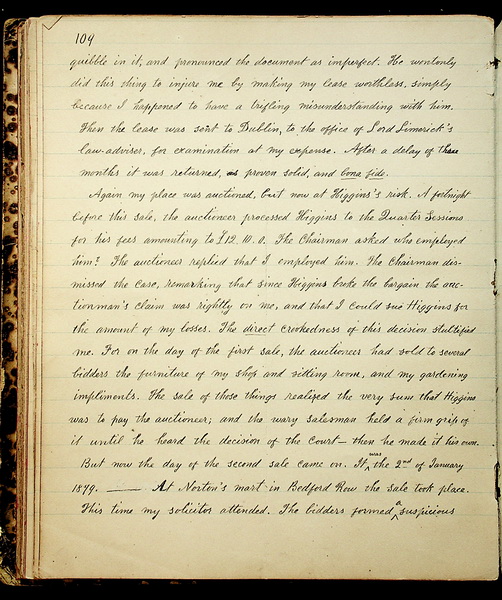 104
quibble in it, and pronounced the document as imperfect. He wontonly
did this thing to injure me by making my lease worthless, simply
because I happened to have a trifling misunderstanding with him.
Then the lease was sent to Dublin, to the office of Lord Limerick's
law-adviser, for examination at my expense. After a delay of three
months it was returned, as proven solid, and bona fide.
Again my place was auctioned, but now at Higgins's risk. A fortnight
before this sale, the auctioneer processed Higgins to the Quarter Sessions
for his fees amounting to £12. 10. 0. The Chairman asked who employed
him? The auctioneer replied that I employed him. The Chairman dis-
missed the case, remarking that since Higgins broke the bargain the auc-
tionman's claim was rightly on me, and that I could sue Higgins for
the amount of my losses. The direct crookedness of this decision stultified
me. For on the day of the first sale, the auctioneer had sold to several
bidders the furniture of my shop and sitting room, and my gardening
impliments. The sale of those things realized the very sum that Higgins
was to pay the auctioneer; and the wary salesman held a firm grip of
it until he heard the decision of the Court — then he made it his own.
But now the day of the second sale came on. It was the 2nd of January
1879. — At Norton's mart in Bedford Row the sale took place.
This time my solicitor attended. The bidders formed a suspicious